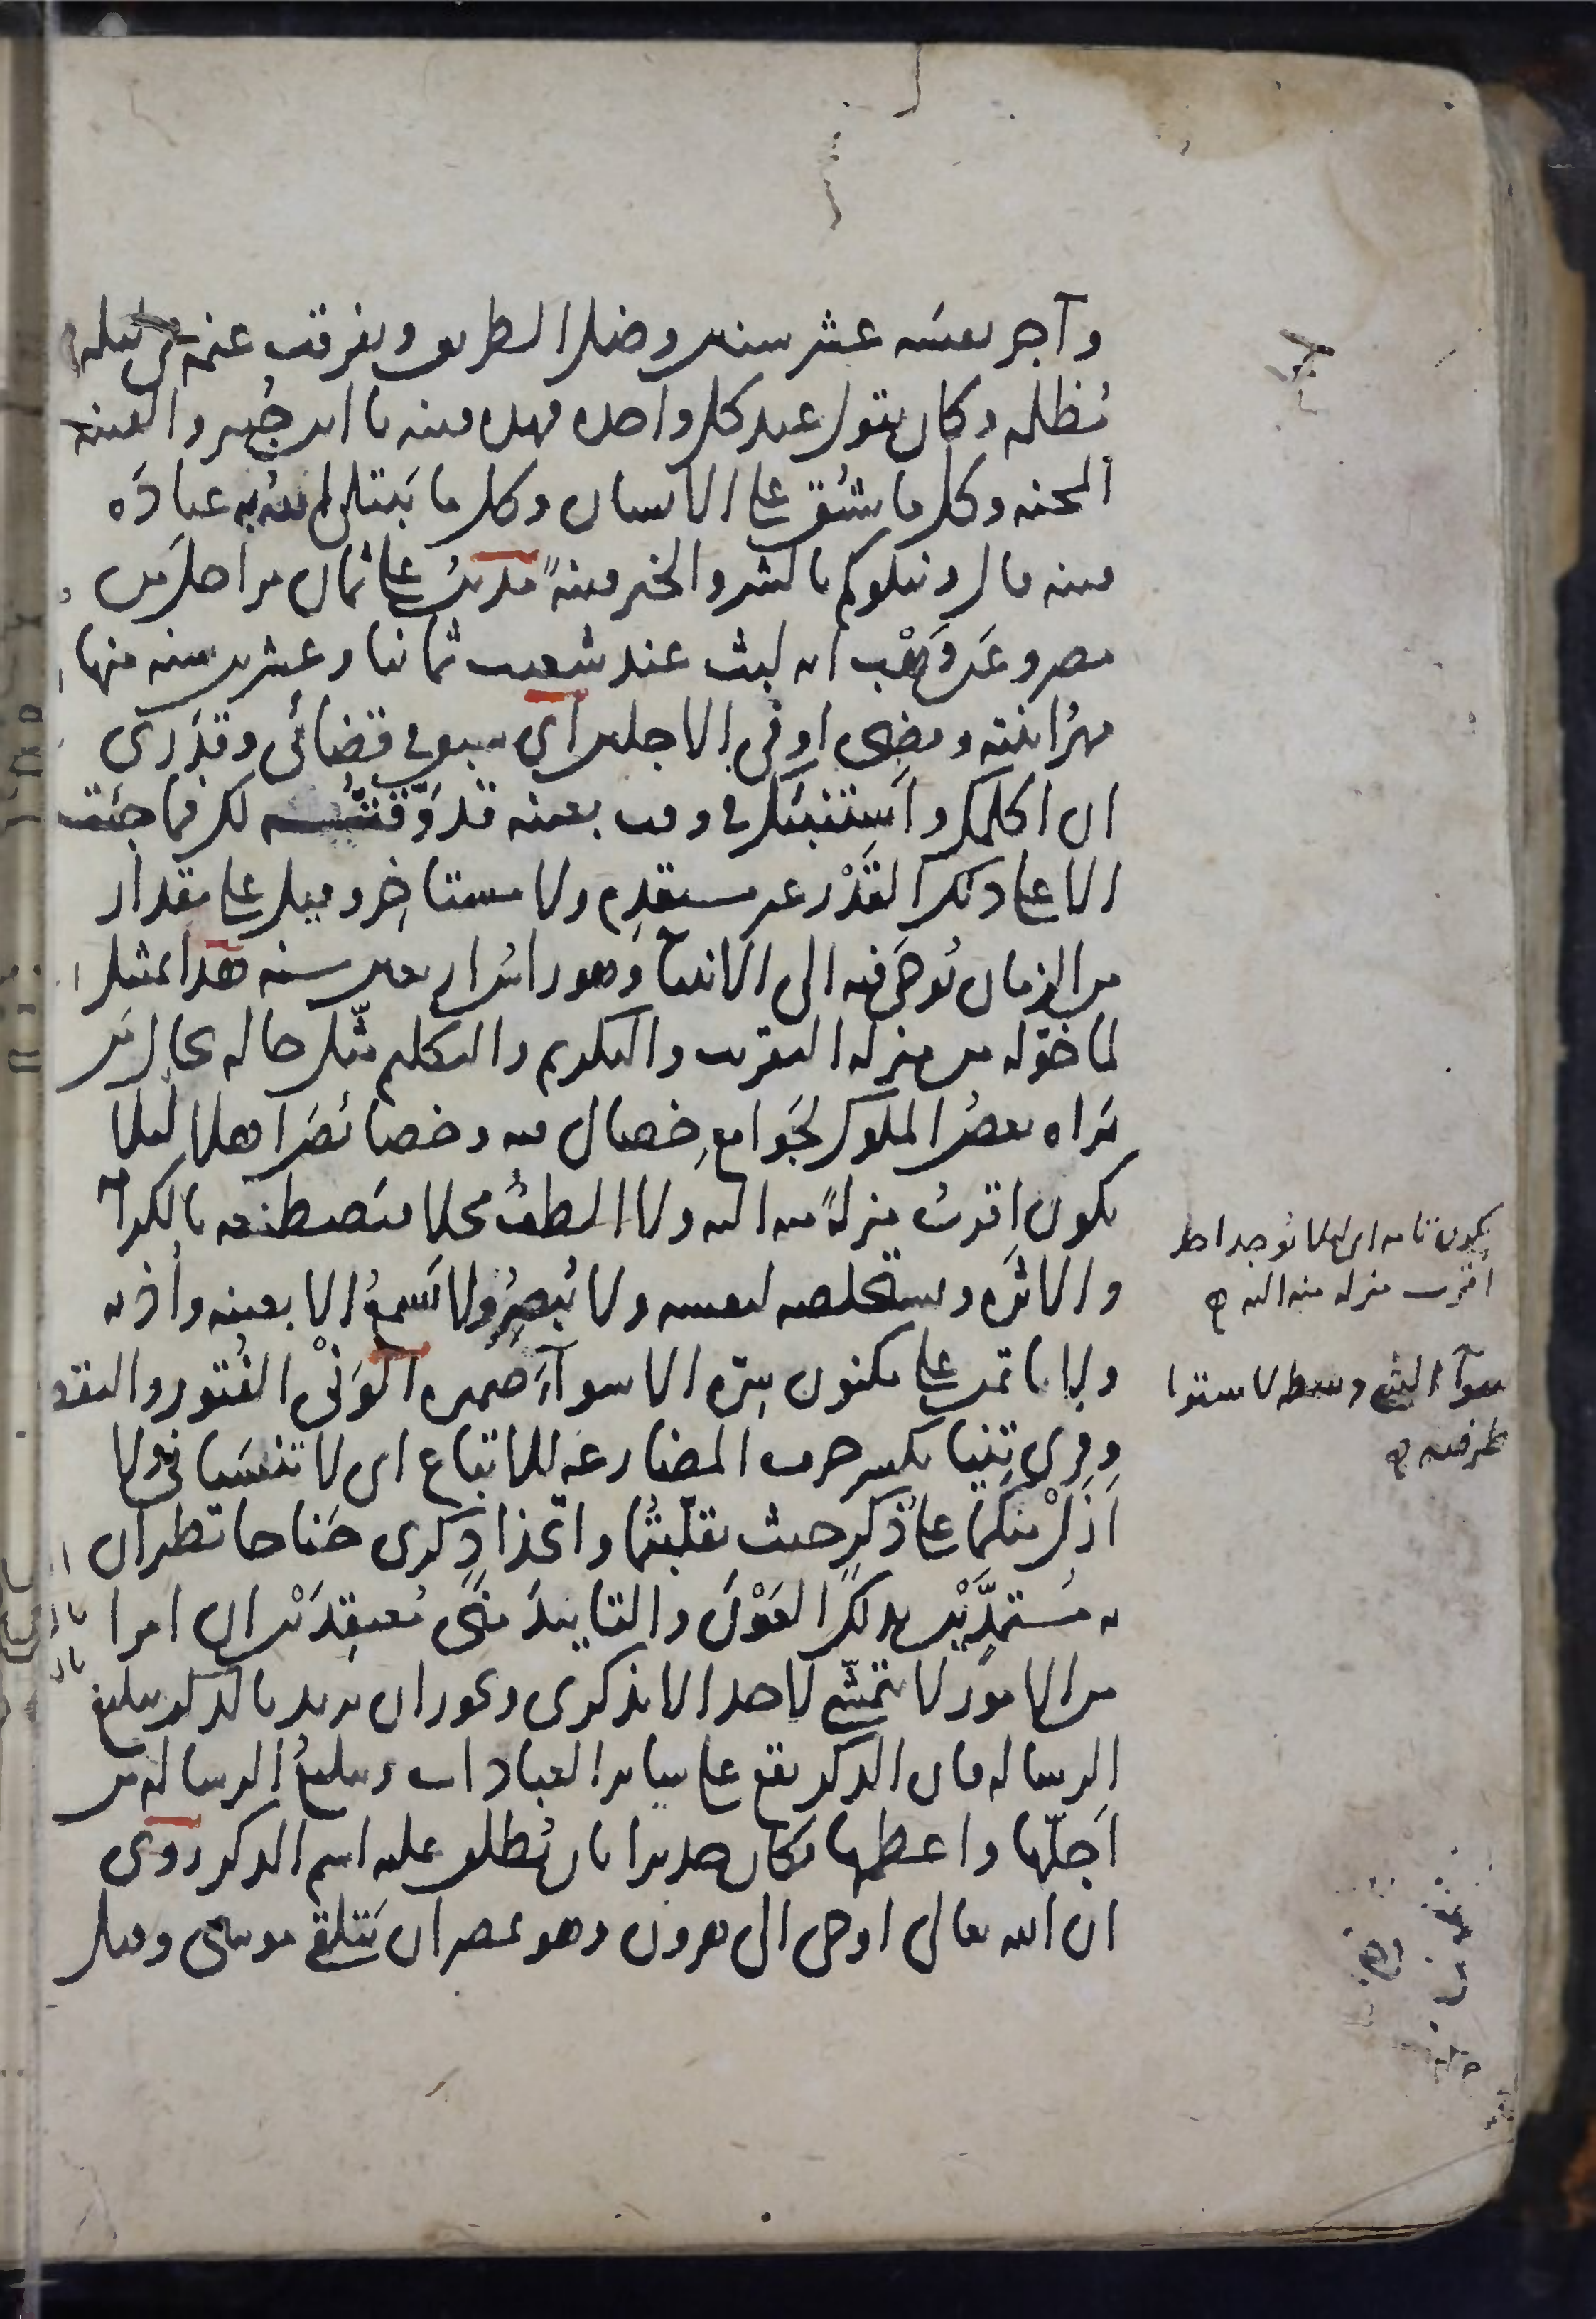 وآجر نفسه عشر سنين وضل الطريق وتفرقت غنمه في ليلة
مظلمة وكان يقول عند كل واحدة فهذه فتنة يا ابن جبير والفتنة
المحنة وكل ما يشق على الانسان وكل ما يبتلي الله به عباده
فتنة قال ونبلوكم بالشر والخير فتنةً مدين على ثمان مراحل من
مصر وعن وَهْب انه لبث عند شعيب ثمانيا وعشرين سنة منها
مهرُ ابنته وقضى اوفى الاجلين اي سبق في قضائي وقَدَري
ان اكلمك وأستنبئك في وقت بعينه قد وقَّتُّه لذلك فما جئت
الا على ذلك القَدْر غير مستقدِم ولا مستاخِر وقيل على مقدار
من الزمان يُوحى فيه الى الانبياء وهو راس اربعين سنة هذا تمثيل
لما خوّله من منزلة التقريب والتكريم والتكليم مثّل حاله بحال من
يَراه بعضُ الملوك لجَوامعِ خصال فيه وخصائصَ اهلا لئلا
يكون اقربُ منزلةً منه اليه ولا الطفُ محلا فيَصطنعه بالكرامة
والاثَرة ويستخلصه لنفسه ولا يُبصِرُ ولا يَسمعُ الا بعينه وأذنه
ولا ياتمن على مكنون سِرّه الا سوآءَ ضميره الوَنْيُ الفُتور والتقصير
وقرى تِنيا بكسر حرف المضارعة للاتباع اي لا تنسَياني ولا
ازَلْ منكما على ذُكرٍ حيث تقلّبتُما واتخذا ذِكرى جَناحا تطيران
به مُستمِدَّيْن بذلك العَوْنَ والتاييدَ مني مُعتقِدَيْن ان امرا
من الامور لا يتمشّى لاحد الا بذكرى ويجوز ان يريد بالذكر تبليغ
الرسالة فان الذكر يقع على سائر العبادات وتبليغُ الرسالة من
أجَلّها واعظمها فكان جديرا بان يُطلق عليه اسم الذكر روى
ان الله تعالى اوحى الى هرون وهو بمصر ان يَتلقى موسى وقيل
يكون تامة اي لئلا يُوجد احد
أقرب منزلة منه اليه
سوآء الشي وسطه لاستواء
طرفيه